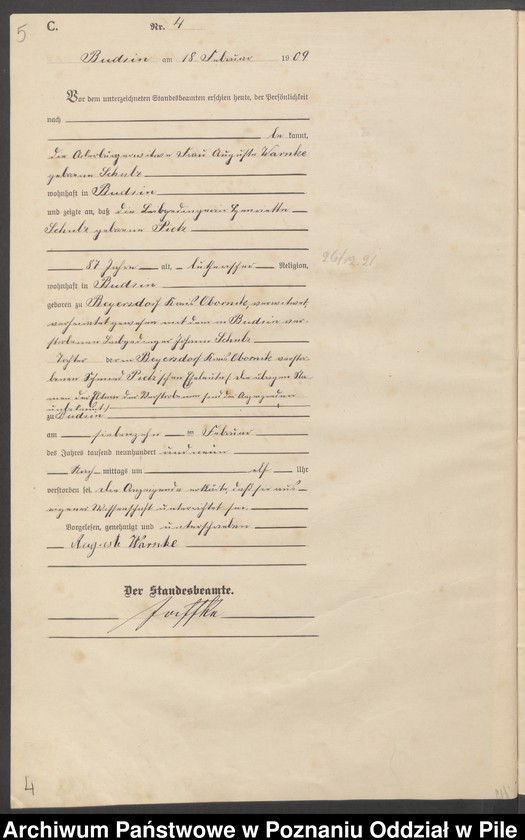 5
C.
Nr. 4
Budsin am 18 Februar 1909
Vor dem unterzeichneten Standesbeamten erschien heute, der Persönlichkeit
nach
be kannt,
die Ackerbürgerwitwe Frau Auguste Warnke
geborene Schulz
wohnhaft in Budsin
und zeigte an, daß die Leibgedingerin Hennette
Schulz geborene Pietz
87 Jahre alt, lutherischer Religion,
wohnhaft in Budsin
geboren zu Beyersdorf Kreis Obornik, verwitwet,
verheiratet gewesen mit dem in Budsin ver-
storbenen Leibgedinger Johann Schulz
Tochter der in Beyersdorf Kreis Obornik verstor-
benen Schmied Pietz'schen Eheleute (die übrigen Na-
men der Eltern der Verstorbenen sind der Anzeigenden
unbekannt)
zu Budsin
am siebenzehn ten Februar
des Jahres tausend neunhundert und neun
Nach mittags um elf Uhr
verstorben sei. Die Anzeigende erklärte, daß sie aus
eigener Wissenschaft unterrichtet sei.
Vorgelesen, genehmigt und unterschrieben
Auguste Warnke
Der Standesbeamte.
4
Archiwum Państwowe w Poznaniu Oddział w Pile